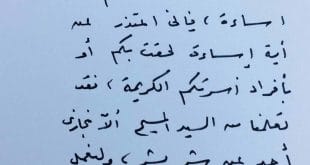 اساءة ، فإنى المتذر لمن
أية إساءة لحقت بكم أو
بأفراد أسرتكم الكريمة ، فقد
تعلمنا من السيد المسيح ألّا نجازى
أحد عن شر بشر ، ولنعمل